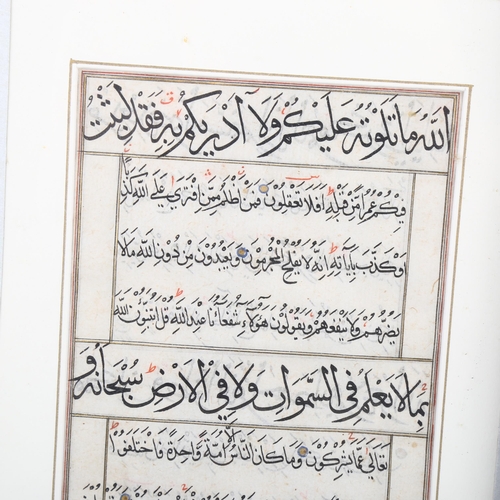 الله ما تلوته عليكم ولا ادريكم به فقد لبثت
فيكم عمرا من قبله افلا تعقلون فمن اظلم ممن افترى على الله كذبا
او كذب باياته انه لا يفلح المجرمون ويعبدون من دون الله مالا
يضرهم ولا ينفعهم ويقولون هؤلاء شفعاؤنا عند الله قل اتنبئون الله
بما لا يعلم في السموات ولا في الارض سبحانه و
تعالى عما يشركون وما كان الناس الا امة واحدة فاختلفوا